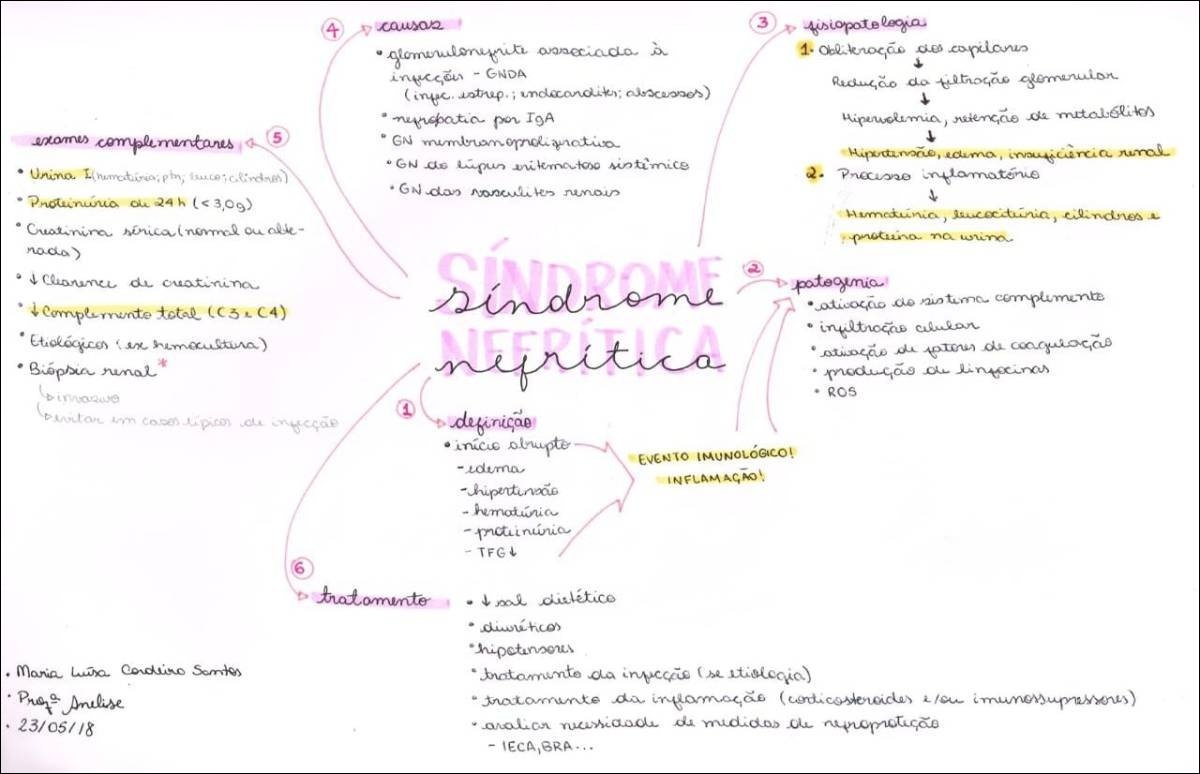 síndrome
nefrítica
SÍNDROME
NEFRÍTICA
1
definição
• início abrupto
- edema
- hipertensão
- hematúria
- proteinúria
- TFG↓
EVENTO IMUNOLÓGICO!
INFLAMAÇÃO!
2
patogenia
• ativação do sistema complemento
• infiltração celular
• ativação de fatores de coagulação
• produção de linfocinas
• ROS
3
fisiopatologia
1. Obliteração dos capilares
↓
Redução da filtração glomerular
↓
Hipervolemia, retenção de metabólitos
↓
Hipertensão, edema, insuficiência renal
2. Processo inflamatório
↓
Hematúria, leucocitúria, cilindros e
proteína na urina
4
causas
• glomerulonefrite associada à
infecções - GNDA
(infec. estrep.; endocardites; abscessos)
• nefropatia por IgA
• GN membranoproliferativa
• GN do lúpus eritematoso sistêmico
• GN das vasculites renais
5
exames complementares
• Urina I (hematúria; ptn; leuco; cilindros)
• Proteinúria de 24h (<3,0g)
• Creatinina sérica (normal ou alte-
rada)
• ↓Clearence de creatinina
• ↓Complemento total (C3 e C4)
• Etiológicos (ex hemocultura)
• Biópsia renal*
↳ invasivo
↳ evitar em casos típicos de infecção
6
tratamento
• ↓ sal dietético
• diuréticos
• hipotensores
• tratamento da infecção (se etiologia)
• tratamento da inflamação (corticosteroides e/ou imunossupressores)
• avaliar necessidade de medidas de nefroproteção
- IECA, BRA...
• Maria Luísa Cordeiro Santos
• Profª Anelise
• 23/05/18